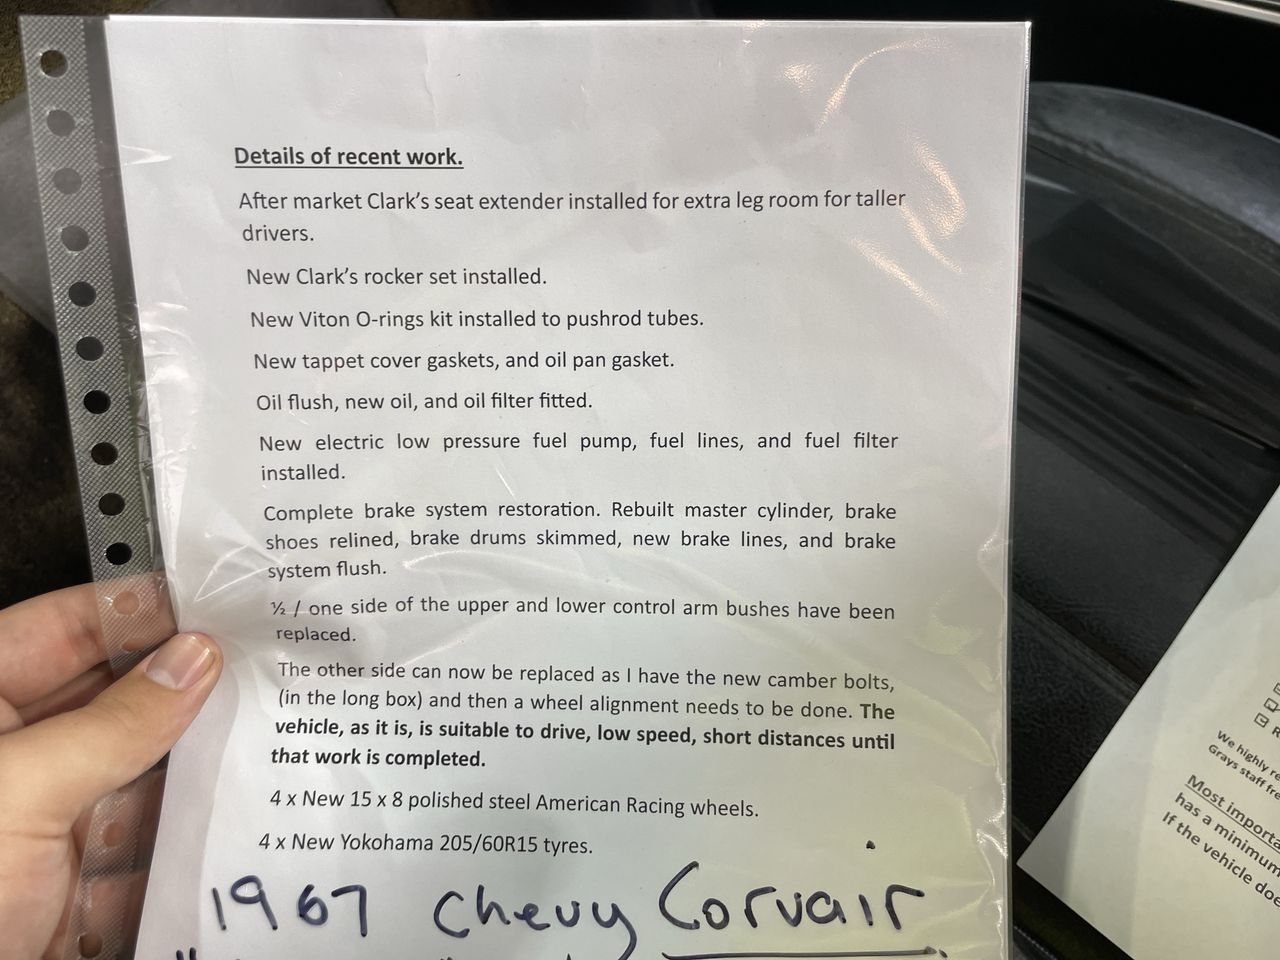 Details of recent work.
After market Clark's seat extender installed for extra leg room for taller
drivers.
New Clark's rocker set installed.
New Viton O-rings kit installed to pushrod tubes.
New tappet cover gaskets, and oil pan gasket.
Oil flush, new oil, and oil filter fitted.
New electric low pressure fuel pump, fuel lines, and fuel filter
installed.
Complete brake system restoration. Rebuilt master cylinder, brake
shoes relined, brake drums skimmed, new brake lines, and brake
system flush.
½ / one side of the upper and lower control arm bushes have been
replaced.
The other side can now be replaced as I have the new camber bolts,
(in the long box) and then a wheel alignment needs to be done. The
vehicle, as it is, is suitable to drive, low speed, short distances until
that work is completed.
4 x New 15 x 8 polished steel American Racing wheels.
4 x New Yokohama 205/60R15 tyres.
1967 Chevy Corvair
We highly
Grays staff
Most
has a minimum
If the vehicle